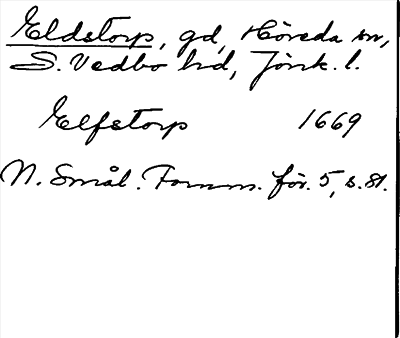 Eldstorp, gd, Höreda sn,
S. Vedbo hd, Jönk. l.
Elfstorp 1669
N. Smål. Fornm. för. 5, s. 81.